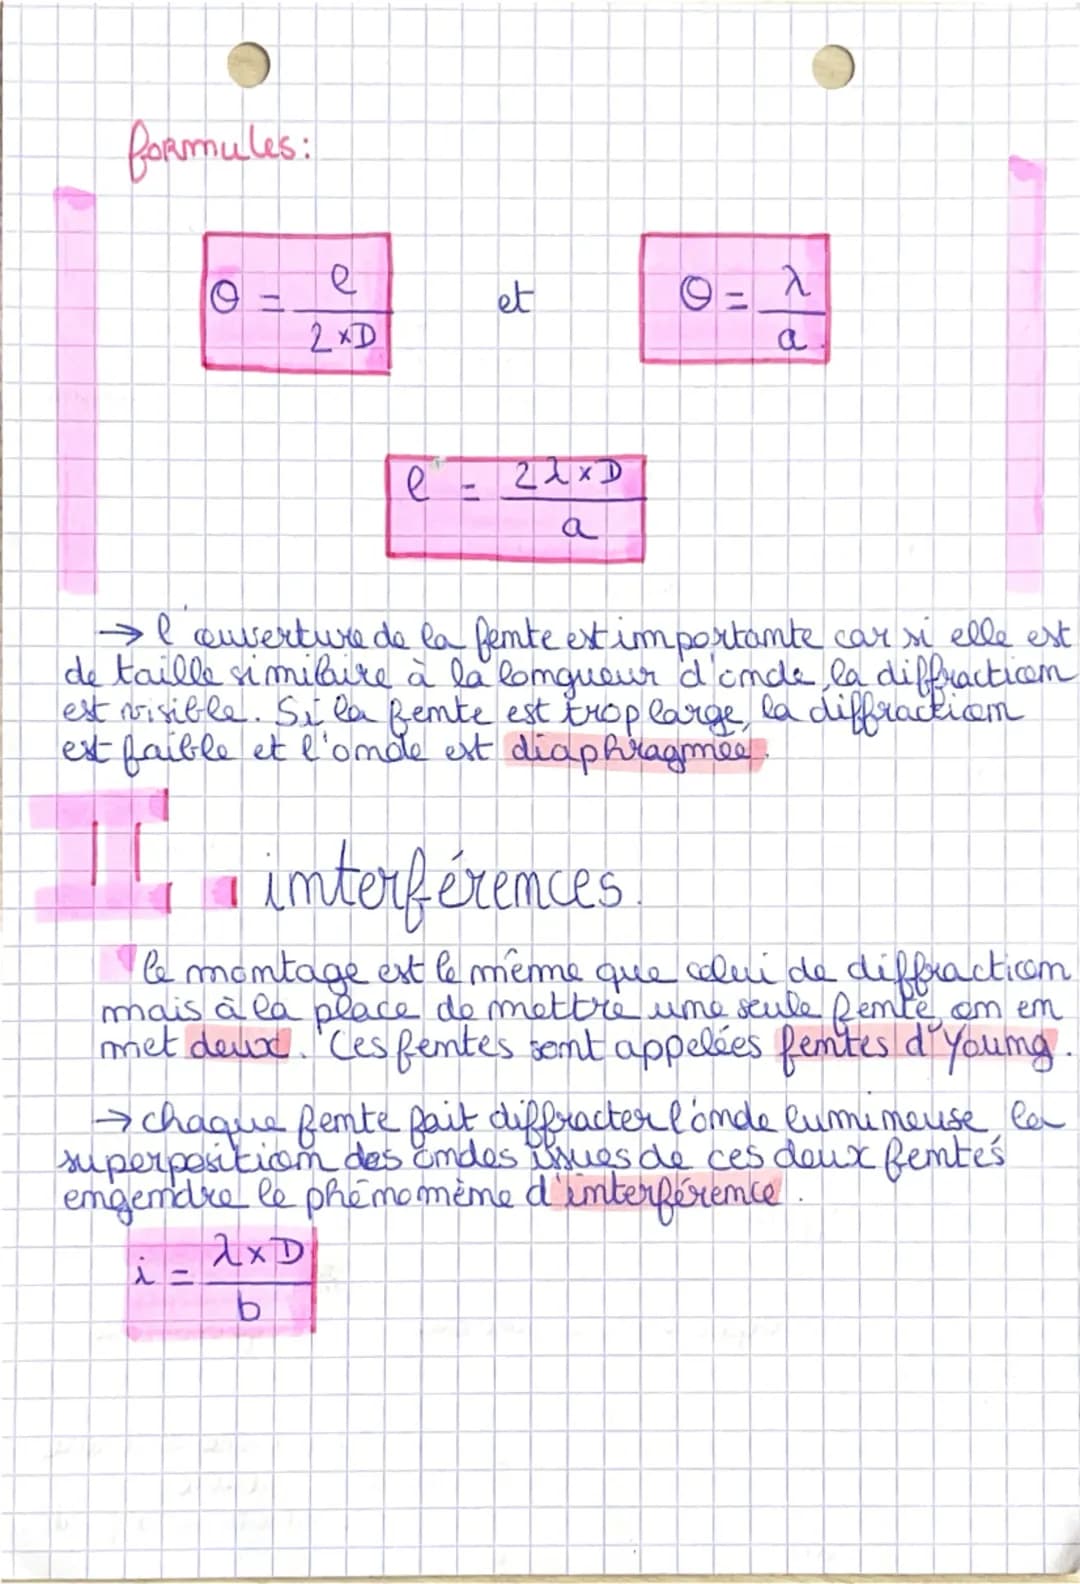 formules:
θ = e / 2 × D et θ = λ / a
e = 2λ × D / a
→ l'ouverture de la fente est importante car si elle est
de taille similaire à la longueur d'onde, la diffraction
est visible. Si la fente est trop large, la diffraction
est faible et l'onde est diaphragmée.
II. interférences.
le montage est le même que celui de diffraction
mais à la place de mettre une seule fente, on en
met deux. Ces fentes sont appelées fentes d'Young.
→ chaque fente fait diffracter l'onde lumineuse, la
superposition des ondes issues de ces deux fentes
engendre le phénomène d'interférence.
i = λ × D / b